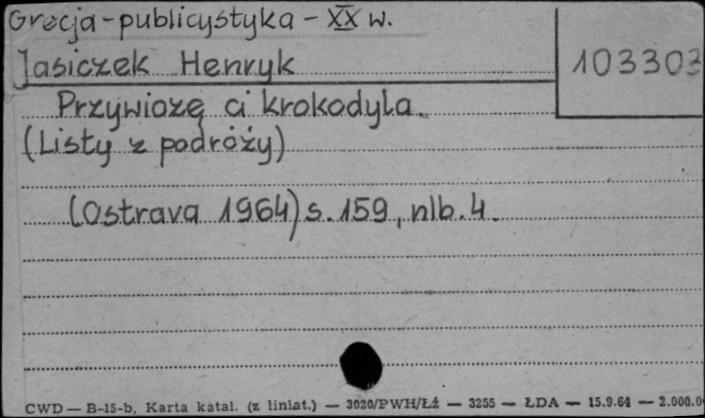 Grecja - publicystyka - XX w.
Jasiczek Henryk
103303
Przywiozę ci krokodyla.
(Listy z podróży)
(Ostrava 1964) s. 159, nlb. 4.
CWD — B-15-b, Karta katal. (z liniat.) — 3020/PWH/Łź — 3255 — ŁDA — 15.9.64 — 2.000.0